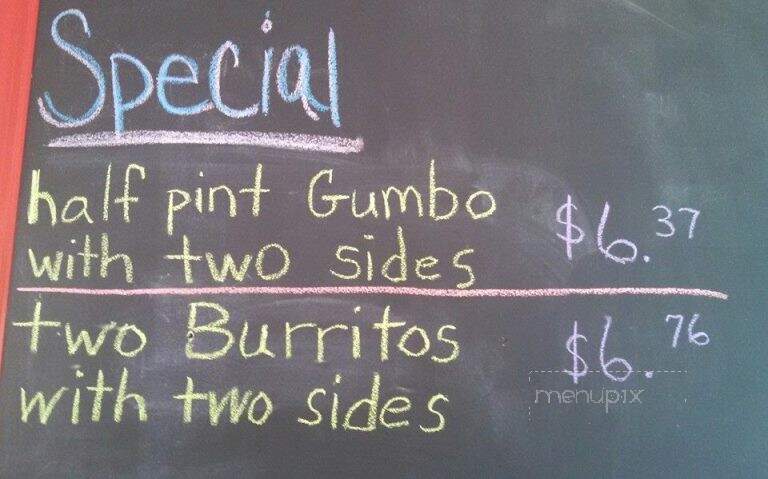 Special
half pint Gumbo
with two sides
$6.37
two Burritos
with two sides
$6.76
menupix